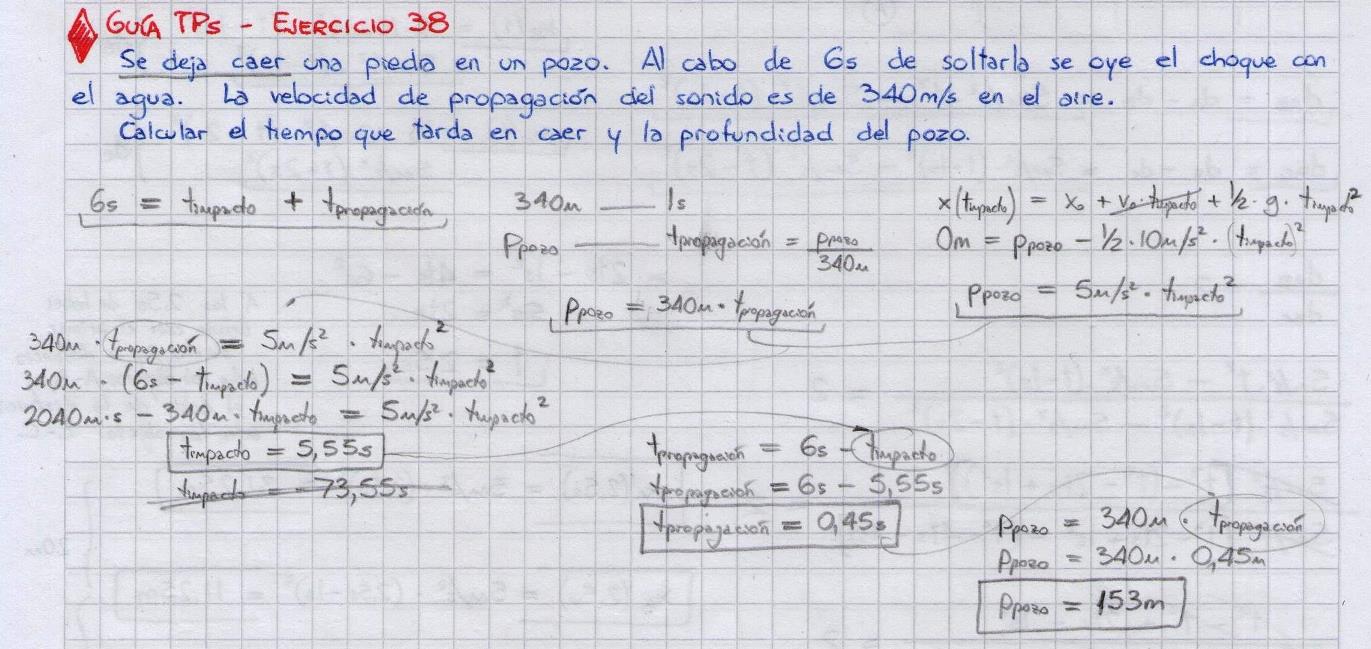 GUÍA TPs - EJERCICIO 38
Se deja caer una piedra en un pozo. Al cabo de 6s de soltarla se oye el choque con
el agua. La velocidad de propagación del sonido es de 340m/s en el aire.
Calcular el tiempo que tarda en caer y la profundidad del pozo.
6s = timpacto + tpropagación
340m — 1s
Ppozo — tpropagación = Ppozo/340m
Ppozo = 340m · tpropagación
x(timpacto) = x₀ + v₀·timpacto + 1/2 · g · timpacto²
0m = Ppozo - 1/2 · 10m/s² · (timpacto)²
Ppozo = 5m/s² · timpacto²
340m · tpropagación = 5m/s² · timpacto²
340m · (6s - timpacto) = 5m/s² · timpacto²
2040m·s - 340m · timpacto = 5m/s² · timpacto²
timpacto = 5,55s
timpacto = -73,55s
tpropagación = 6s - timpacto
tpropagación = 6s - 5,55s
tpropagación = 0,45s
Ppozo = 340m · tpropagación
Ppozo = 340m · 0,45m
Ppozo = 153m